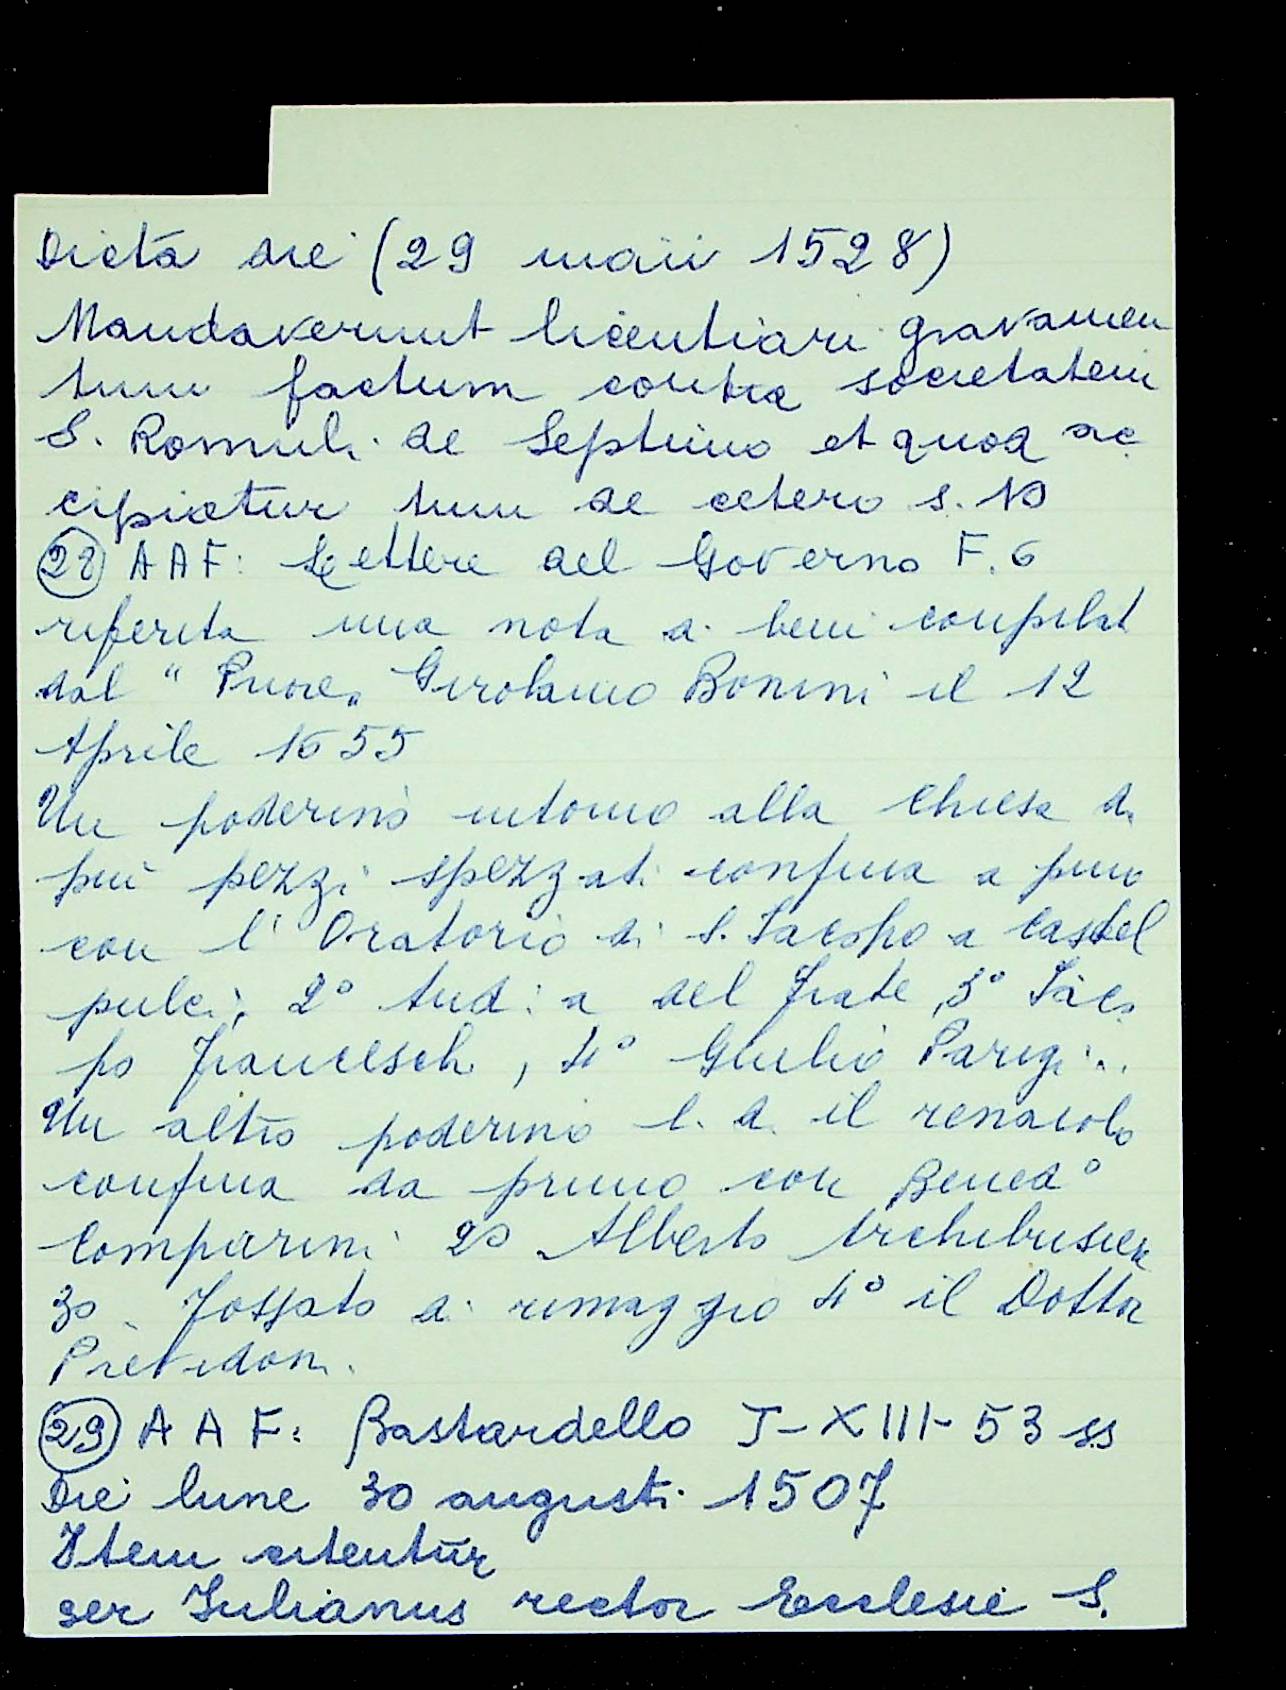 Dicta die (29 maii 1528)
Mandaverunt licentiari gravamen
tum factum contra societatem
S. Romuli de Septimo et quod ac
cipiatur tum de cetero s. 10
(28) AAF: Lettere del Governo F. 6
riferita una nota di beni compilat
dal "Priore" Girolamo Bonini il 12
Aprile 1655
Un poderino intorno alla chiesa di
più pezzi spezzati confina a primo
con l'Oratorio di S. Iacopo a Castel
pulci, 2° And: a del Frate, 3° Iaco
po Franceschi, 4° Giulio Parigi..
Un altro poderino l. d. il renaiolo
confina da primo con Bened°
Comparini 2° Alberto Archibusier
3° Fossato di rimaggio 4° il Dottor
Pretidoni.
(29) AAF: Bastardello I-XIII-53 ss
Die lune 30 augusti 1507
Item citentur
ser Iulianus rector Ecclesie S.